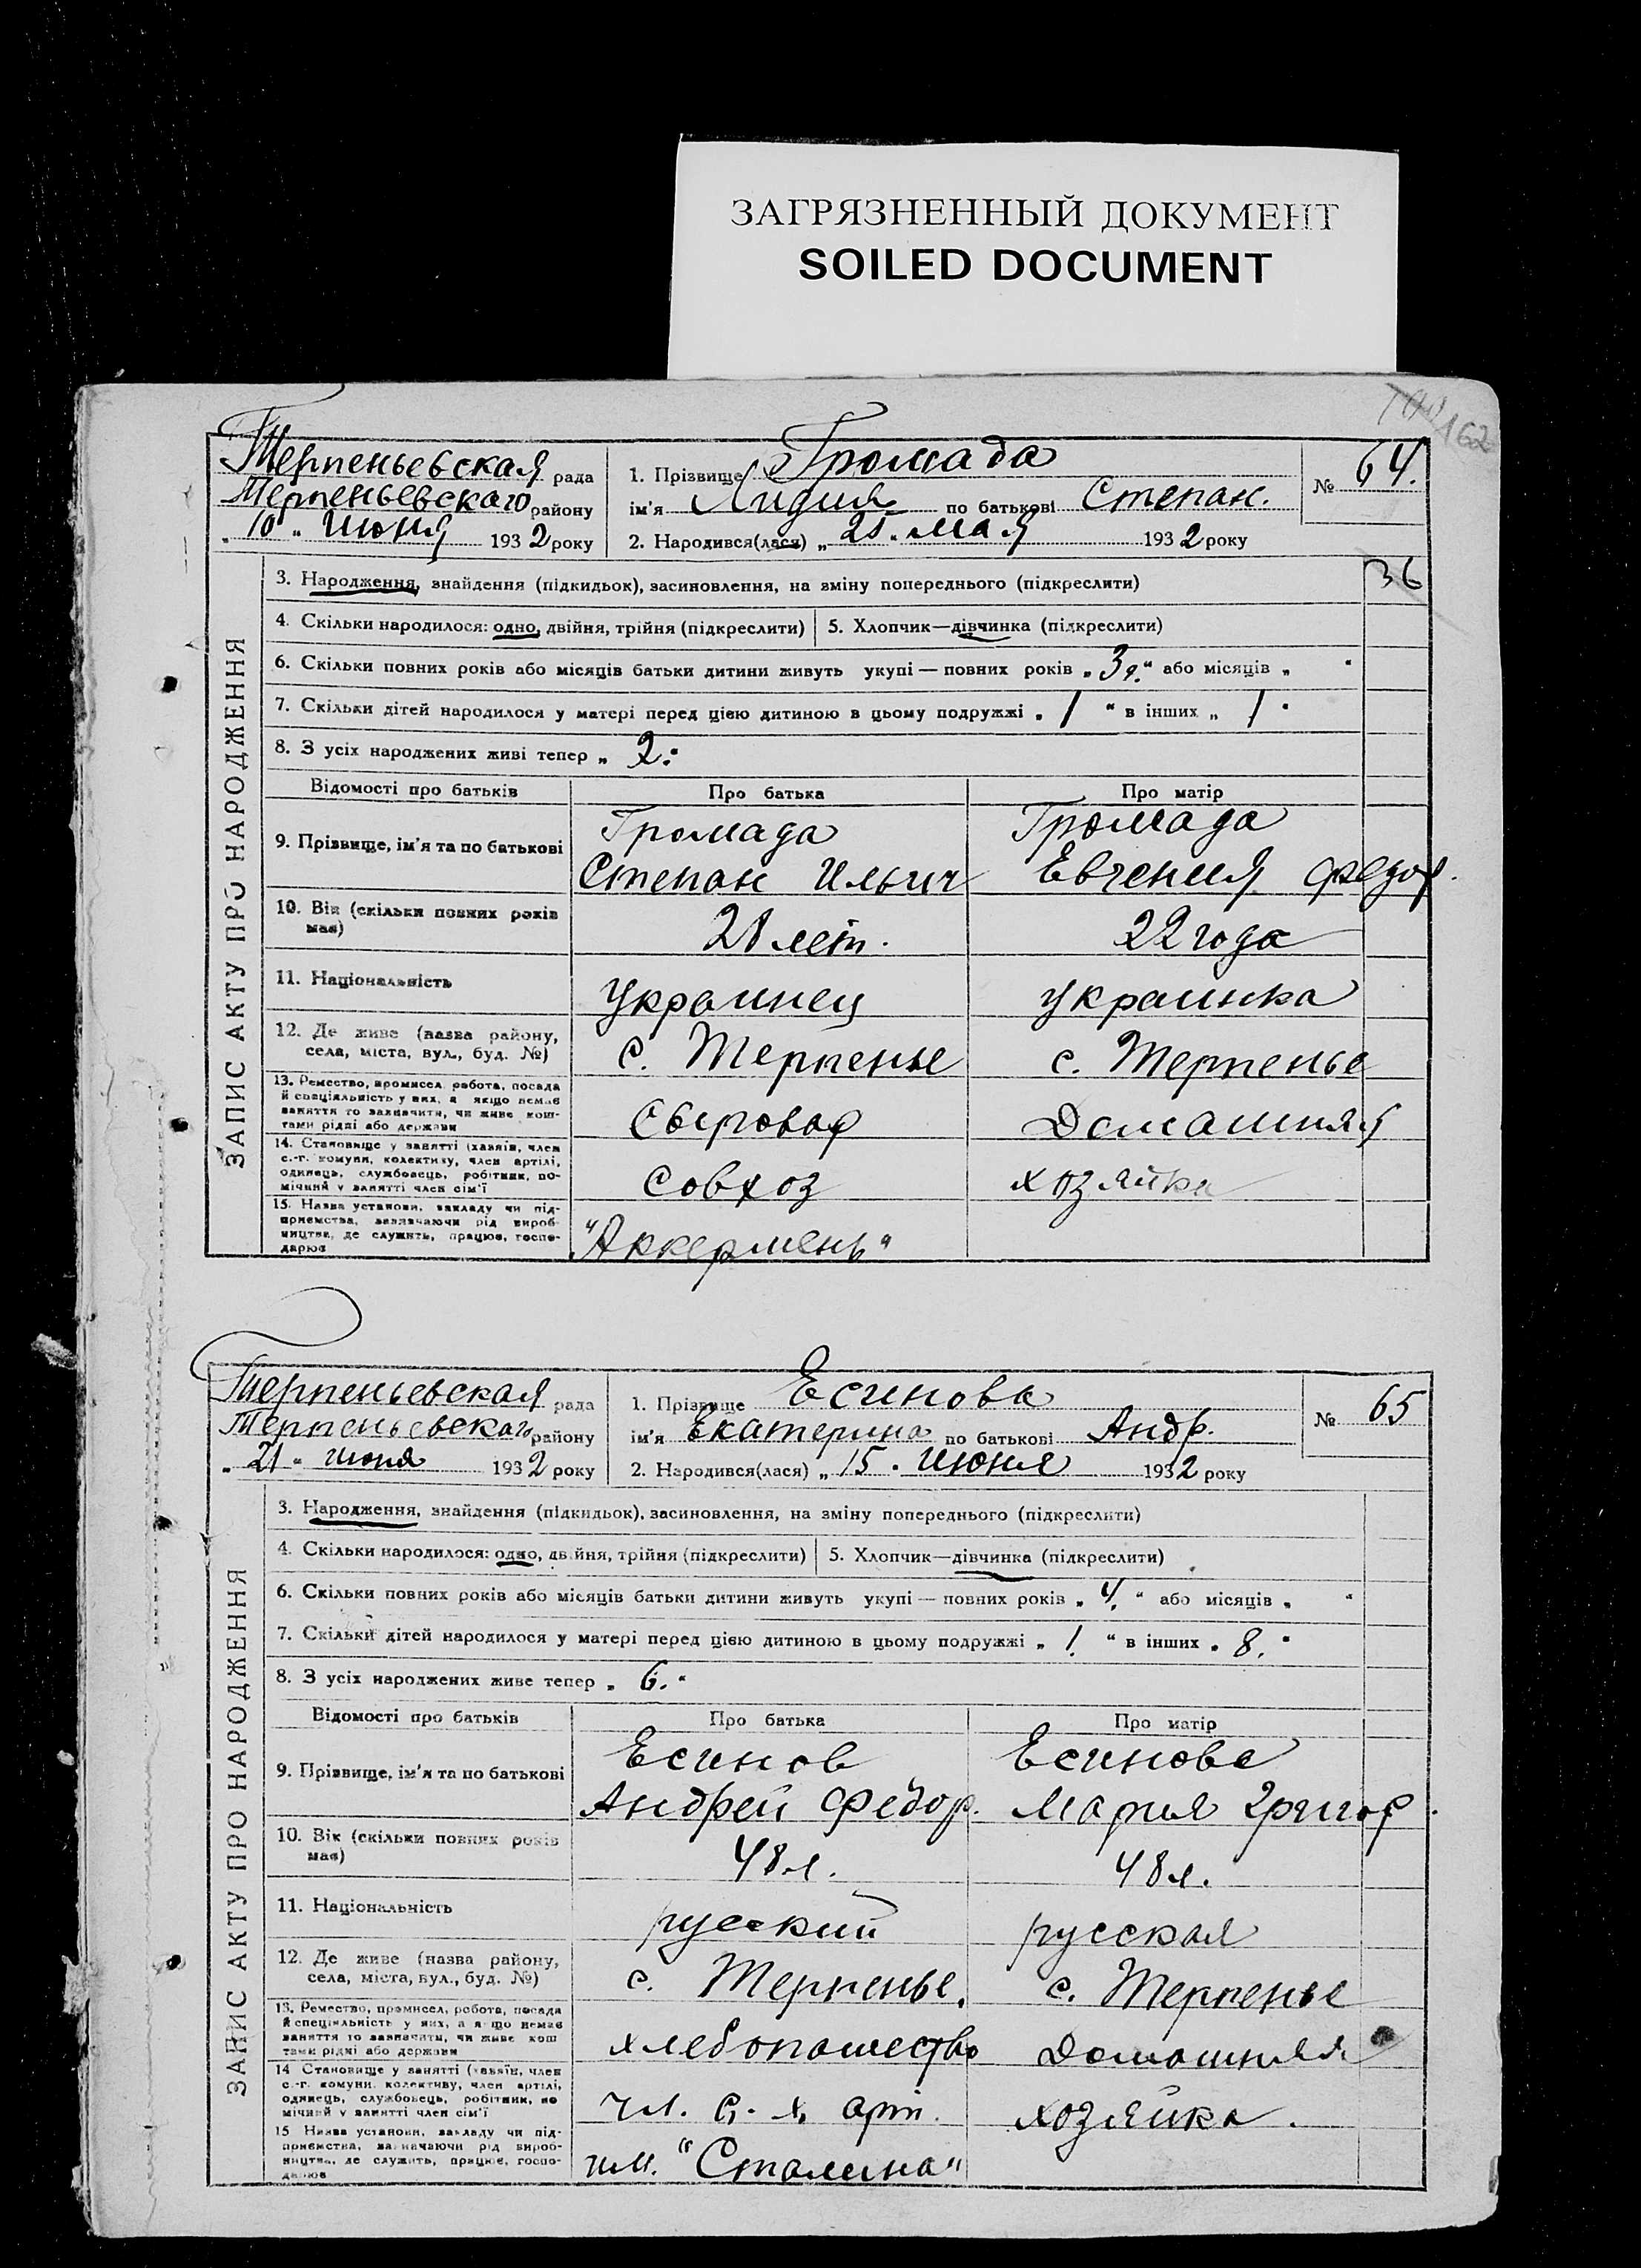 ЗАГРЯЗНЕННЫЙ ДОКУМЕНТ
SOILED DOCUMENT
162
ЗАПИС АКТУ ПРО НАРОДЖЕННЯ
Терпеньевская рада
Терпеньевского району
„10" июня 1932 року
1. Прізвище Громада
ім'я Лидия по батькові Степан.
2. Народився(лася) „ 28 " мая 1932 року
№ 64.
3. Народження, знайдення (підкидьок), засиновлення, на зміну попереднього (підкреслити)
36
4. Скільки народилося: одно, двійня, трійня (підкреслити) 5. Хлопчик—дівчинка (підкреслити)
6. Скільки повних років або місяців батьки дитини живуть укупі — повних років „ 3 г. " або місяців „ "
7. Скільки дітей народилося у матері перед цією дитиною в цьому подружжі „ 1 " в інших „ 1 "
8. З усіх народжених живі тепер „ 2. "
Відомості про батьків Про батька Про матір
9. Прізвище, ім'я та по батькові
Громада Громада
Степан Ильич Евгения Федор.
10. Вік (скільки повних років
має)
28 лет. 22 года
11. Національність
украинец украинка
12. Де живе (назва району,
села, міста, вул., буд. №)
с. Терпенье с. Терпенье
13. Ремество, промисел, робота, посада
й спеціяльність у них, а якщо немає
заняття то зазначити, чи живе кош-
тами рідні або держави
Сыровар Домашняя
14. Становище у занятті (хазяїн, член
с.-г. комуни, колективу, член артілі,
одинець, службовець, робітник, по-
мічний у занятті член сім'ї
совхоз хозяйка
15. Назва установи, закладу чи під-
приємства, зазначаючи рід вироб-
ництва, де служить, працює, госпо-
дарює
"Аккермень"
ЗАПИС АКТУ ПРО НАРОДЖЕННЯ
Терпеньевская рада
Терпеньевского району
„ 21 " июня 1932 року
1. Прізвище Есинова
ім'я Екатерина по батькові Андр.
2. Народився(лася) „ 15 " июня 1932 року
№ 65
3. Народження, знайдення (підкидьок), засиновлення, на зміну попереднього (підкреслити)
4. Скільки народилося: одно, двійня, трійня (підкреслити) 5. Хлопчик—дівчинка (підкреслити)
6. Скільки повних років або місяців батьки дитини живуть укупі — повних років „ 4. " або місяців „ "
7. Скільки дітей народилося у матері перед цією дитиною в цьому подружжі „ 1. " в інших „ 8. "
8. З усіх народжених живе тепер „ 6. "
Відомості про батьків Про батька Про матір
9. Прізвище, ім'я та по батькові
Есинов Есинова
Андрей Федор. Мария Григор.
10. Вік (скільки повних років
має)
48 л. 48 л.
11. Національність
русский русская
12. Де живе (назва району,
села, міста, вул., буд. №)
с. Терпенье. с. Терпенье
13. Ремество, промисел, робота, посада
й спеціяльність у них, а якщо немає
заняття то зазначити, чи живе кош
тами рідні або держави
хлебопашество Домашняя
14 Становище у занятті (хазяїн, член
с.-г. комуни, колективу, член артілі,
одинець, службовець, робітник, по
мічний у занятті член сім'ї
чл. с.-х. арт. хозяйка.
15 Назва установи, закладу чи під-
приємства, зазначаючи рід вироб-
ництва, де служить, працює, госпо-
дарює
им. "Сталина"